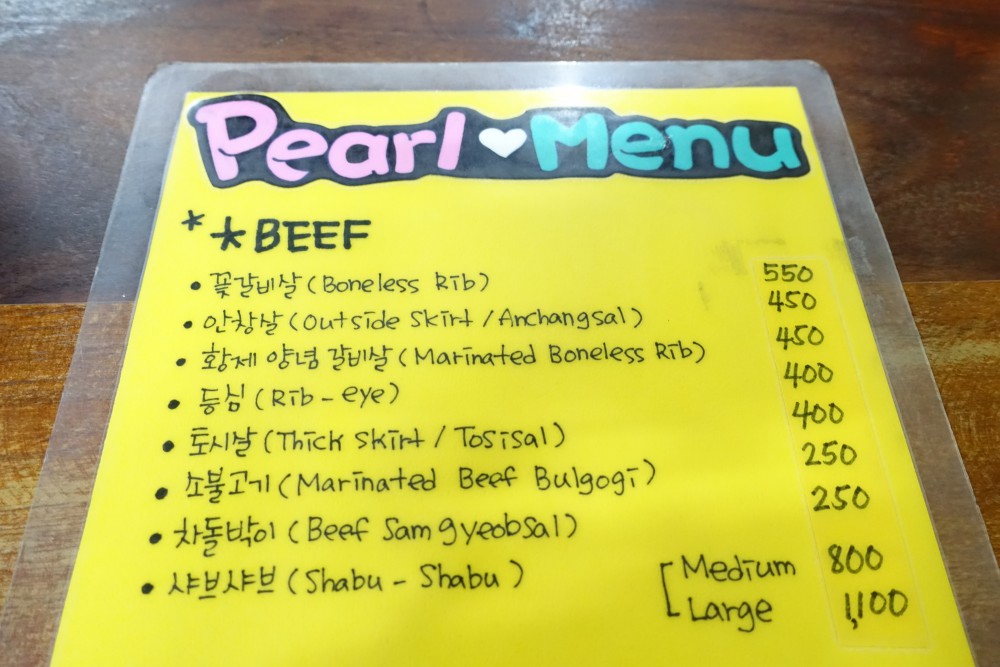 Pearl Menu
* *BEEF
• 꽃갈비살 (Boneless Rib) 550
• 안창살 (Outside Skirt / Anchangsal) 450
• 황제 양념 갈비살 (Marinated Boneless Rib) 450
• 등심 (Rib-eye) 400
• 토시살 (Thick Skirt / Tosisal) 400
• 소불고기 (Marinated Beef Bulgogi) 250
• 차돌박이 (Beef Samgyeobsal) 250
• 샤브샤브 (Shabu-Shabu) Medium 800
Large 1,100